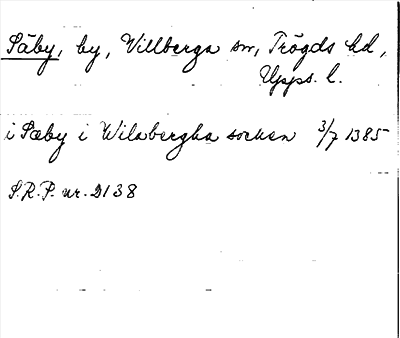 Säby, by, Villberga sn, Trögds hd,
Upps. l.
i Sæby i Wilabergha socken 3/7 1385
S.R.P. nr. 2138